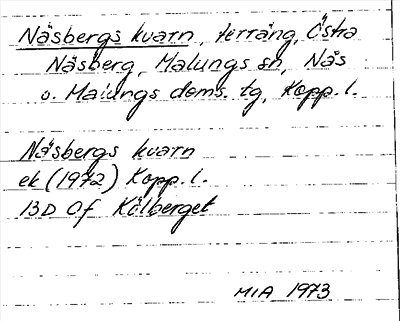 Näsbergs kvarn, terräng, Östra
Näsberg, Malungs sn, Nås
o. Malungs doms. tg, Kopp. l.
Näsbergs kvarn
ek (1972) Kopp. l.
13D 0f Kölberget
MIA 1973